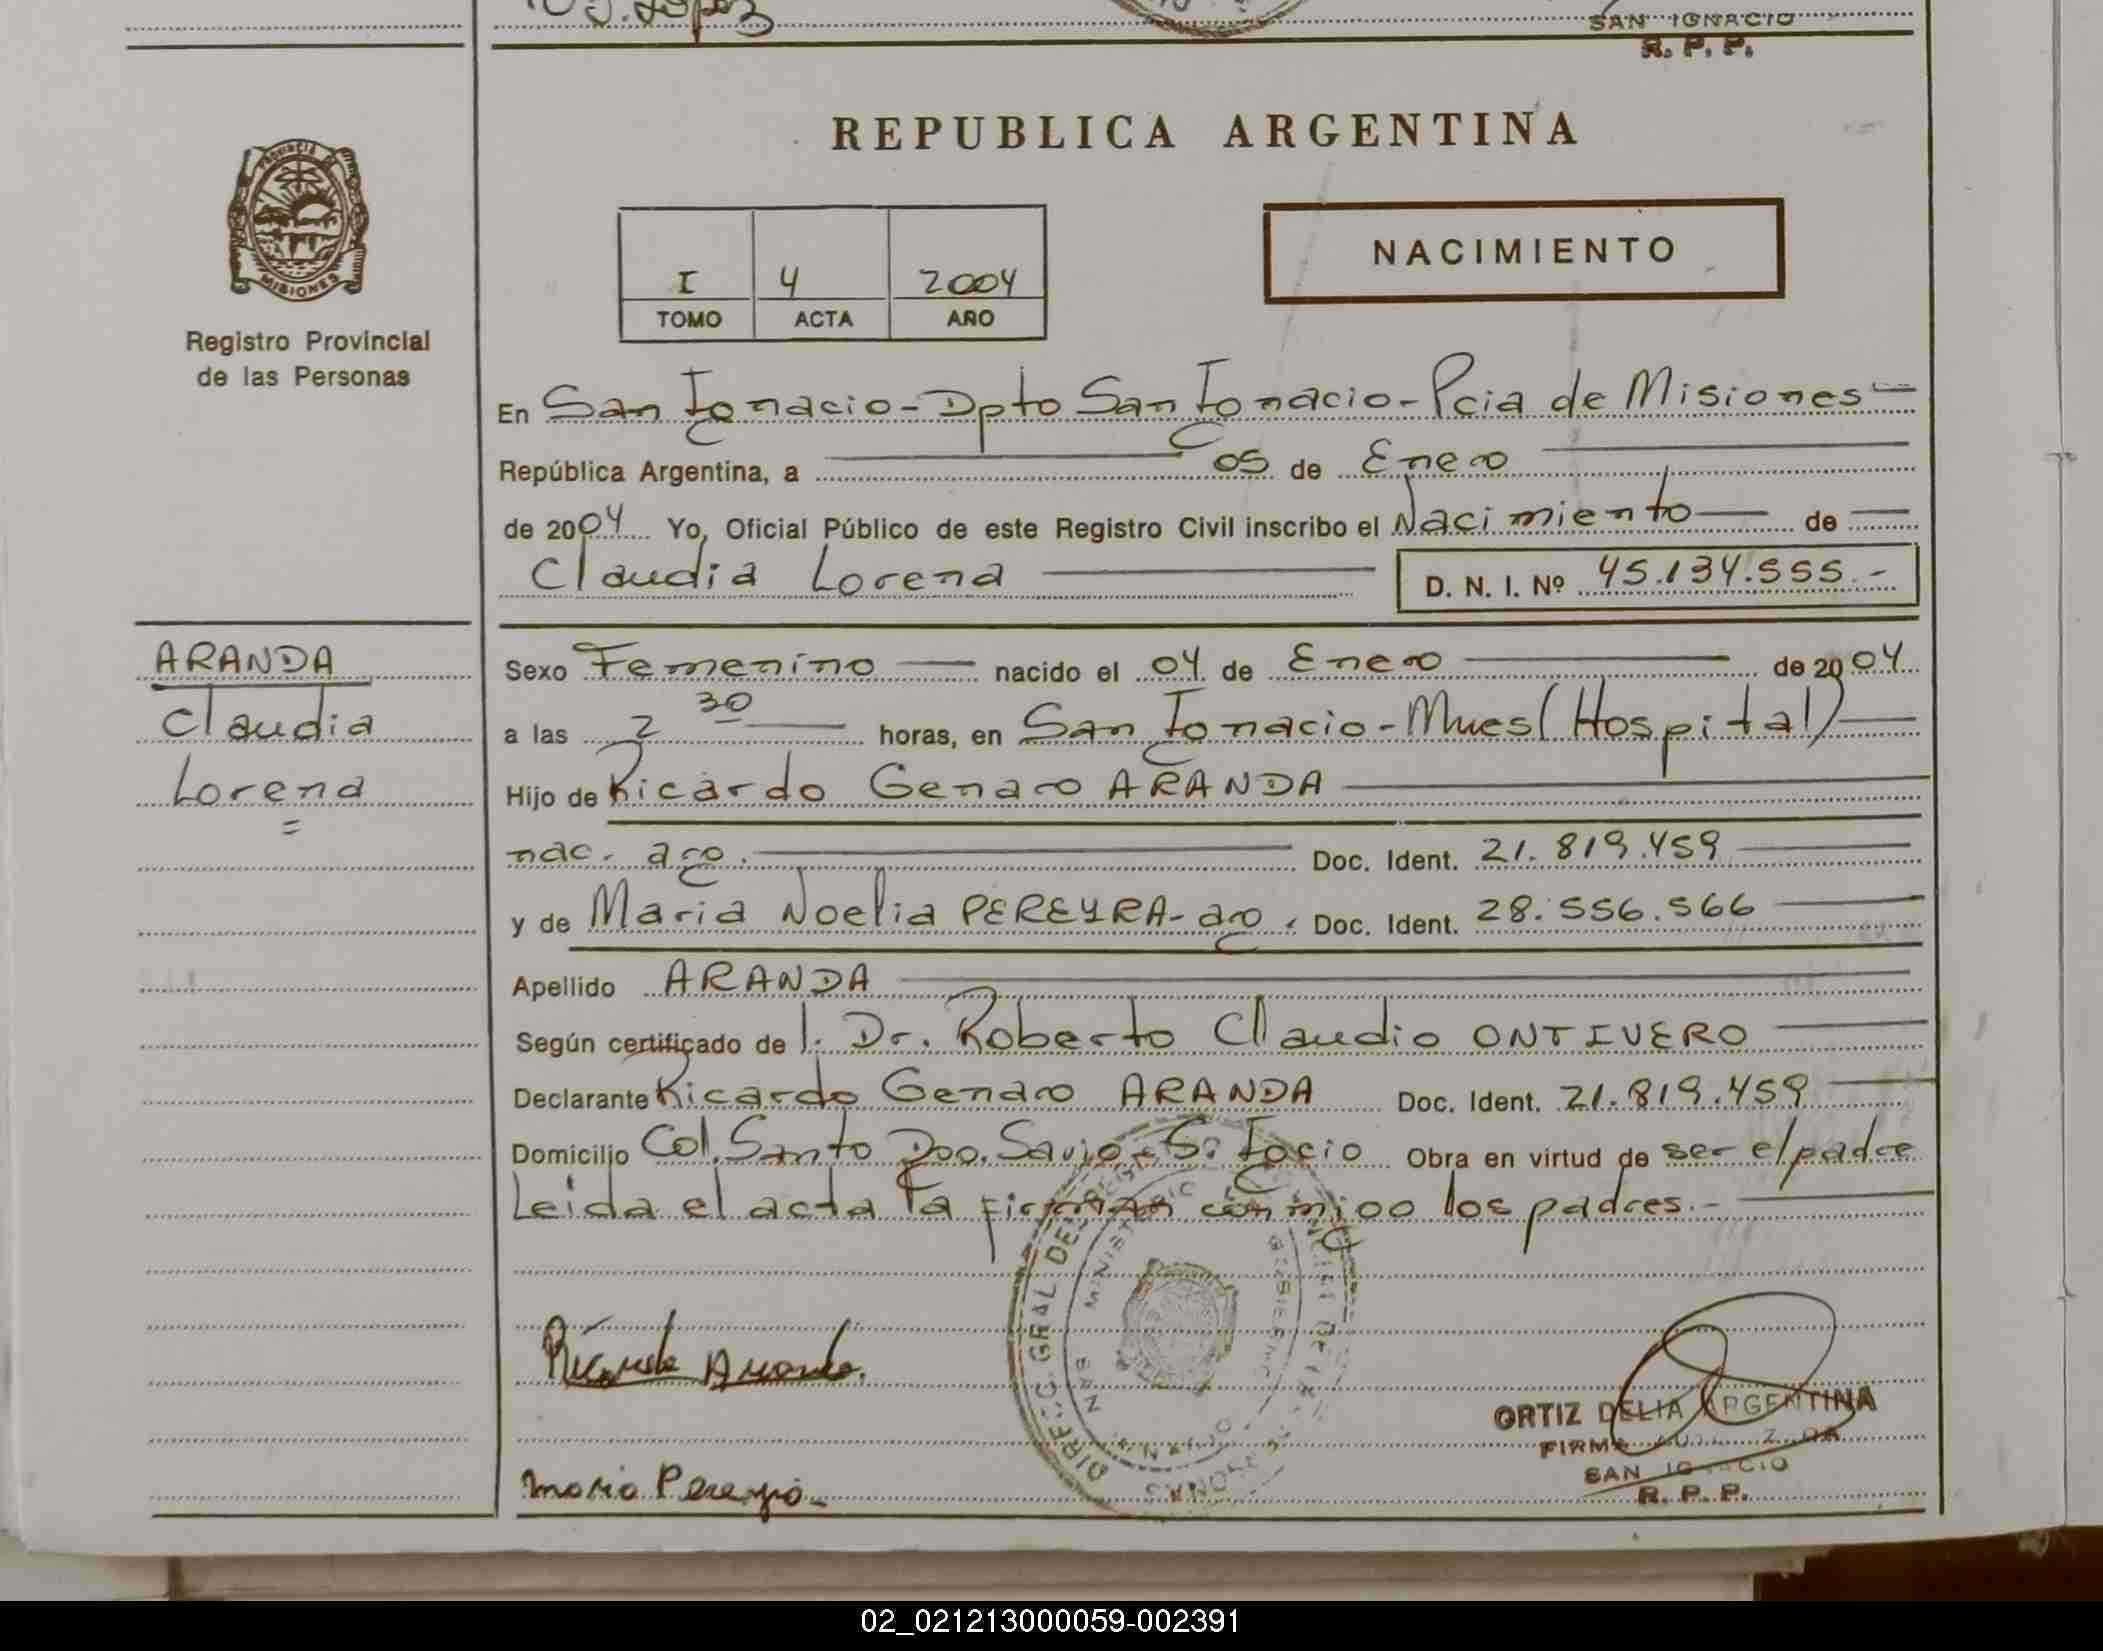 J. López
SAN IGNACIO
R. P. P.
PROVINCIA
MISIONES
Registro Provincial
de las Personas
REPUBLICA ARGENTINA
NACIMIENTO
I 4 2004
TOMO ACTA AÑO
En San Ignacio - Dpto San Ignacio - Pcia de Misiones -
República Argentina, a 05 de Enero
de 2004 Yo, Oficial Público de este Registro Civil inscribo el Nacimiento de
Claudia Lorena D. N. I. Nº 45.134.555.-
ARANDA
Claudia
Lorena
=
Sexo Femenino nacido el 04 de Enero de 2004
a las 2 30 horas, en San Ignacio - Mnes (Hospital)
Hijo de Ricardo Genaro ARANDA
nac. arg. Doc. Ident. 21.819.459
y de Maria Noelia PEREYRA - arg. Doc. Ident. 28.556.566
Apellido ARANDA
Según certificado de l. Dr. Roberto Claudio ONTIVERO
Declarante Ricardo Genaro ARANDA Doc. Ident. 21.819.459
Domicilio Col. Santo Dgo. Savio - S. Igcio Obra en virtud de ser el padre
Leida el acta la firman conmigo los padres.-
DIREC. GRAL DEL
MINISTERIO
SAN
Ricardo Aranda.
Maria Pereyra
ORTIZ DELIA ARGENTINA
FIRMA AUTORIZADA
SAN IGNACIO
R. P. P.
02_021213000059-002391